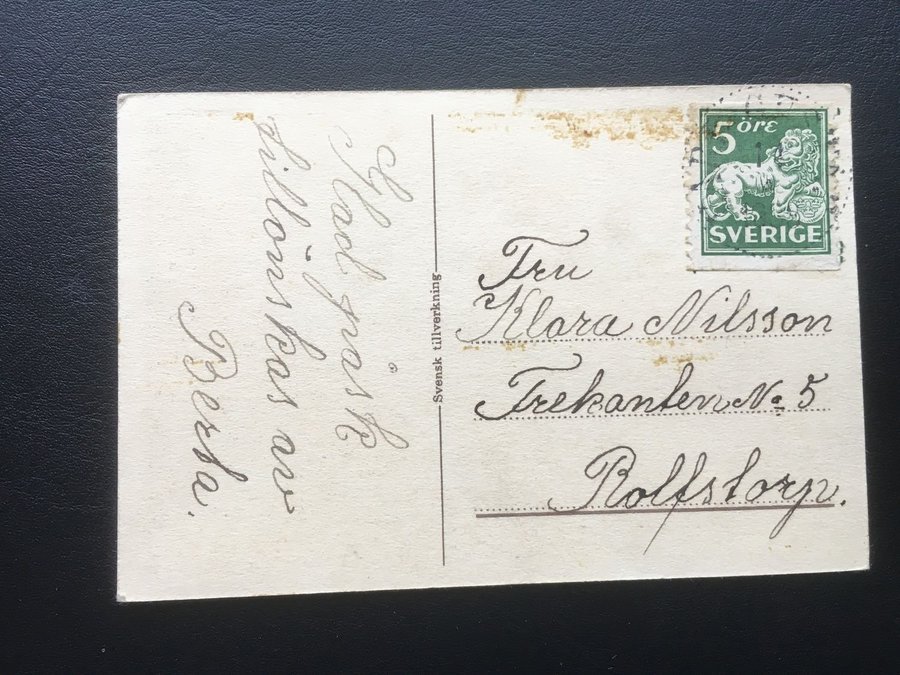 Glad påsk
tillönskas av
Berta.
Svensk tillverkning
5 öre
SVERIGE
Fru
Klara Nilsson
Trekanten No 5
Rolfstorp.